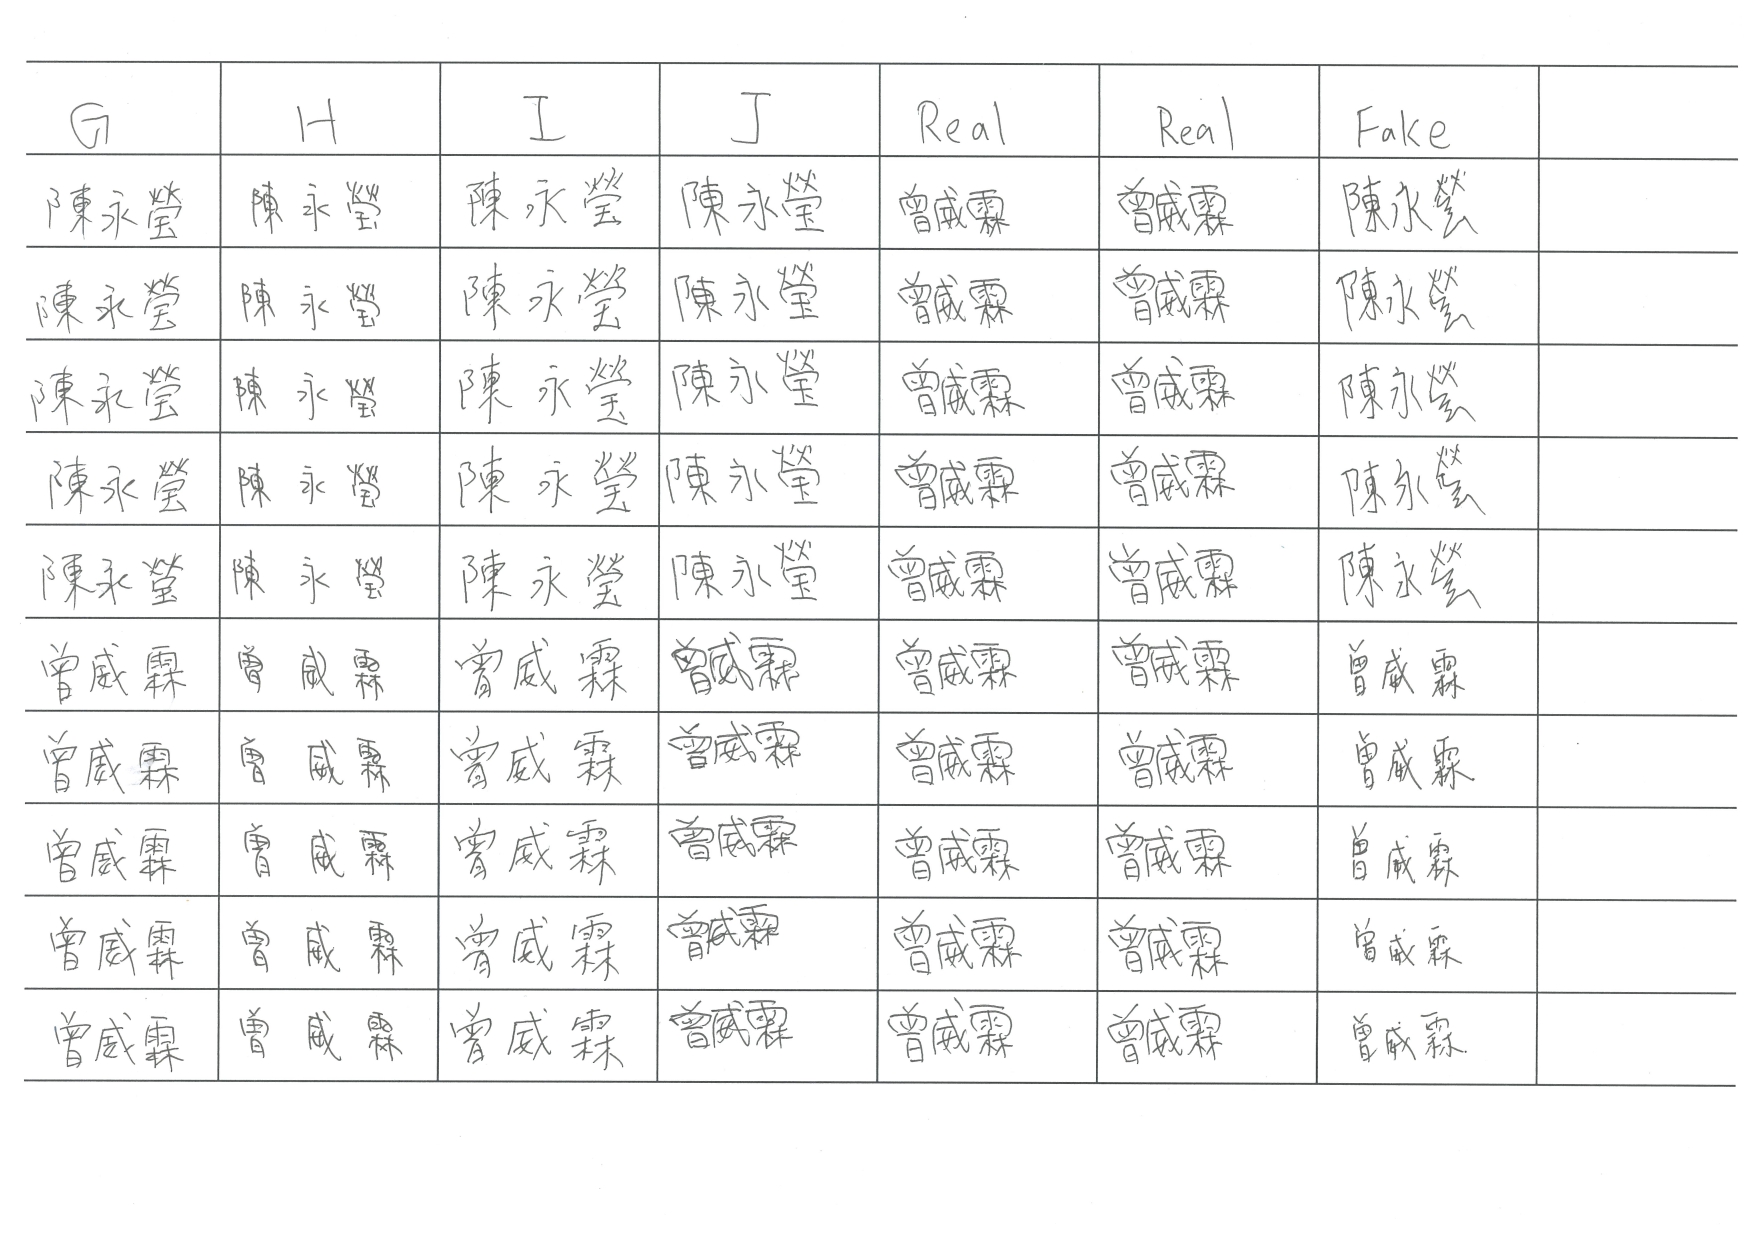 G H I J Real Real Fake
陳永瑩 陳永瑩 陳永瑩 陳永瑩 曾威霖 曾威霖 陳永瑩
陳永瑩 陳永瑩 陳永瑩 陳永瑩 曾威霖 曾威霖 陳永瑩
陳永瑩 陳永瑩 陳永瑩 陳永瑩 曾威霖 曾威霖 陳永瑩
陳永瑩 陳永瑩 陳永瑩 陳永瑩 曾威霖 曾威霖 陳永瑩
陳永瑩 陳永瑩 陳永瑩 陳永瑩 曾威霖 曾威霖 陳永瑩
曾威霖 曾威霖 曾威霖 曾威霖 曾威霖 曾威霖 曾威霖
曾威霖 曾威霖 曾威霖 曾威霖 曾威霖 曾威霖 曾威霖
曾威霖 曾威霖 曾威霖 曾威霖 曾威霖 曾威霖 曾威霖
曾威霖 曾威霖 曾威霖 曾威霖 曾威霖 曾威霖 曾威霖
曾威霖 曾威霖 曾威霖 曾威霖 曾威霖 曾威霖 曾威霖